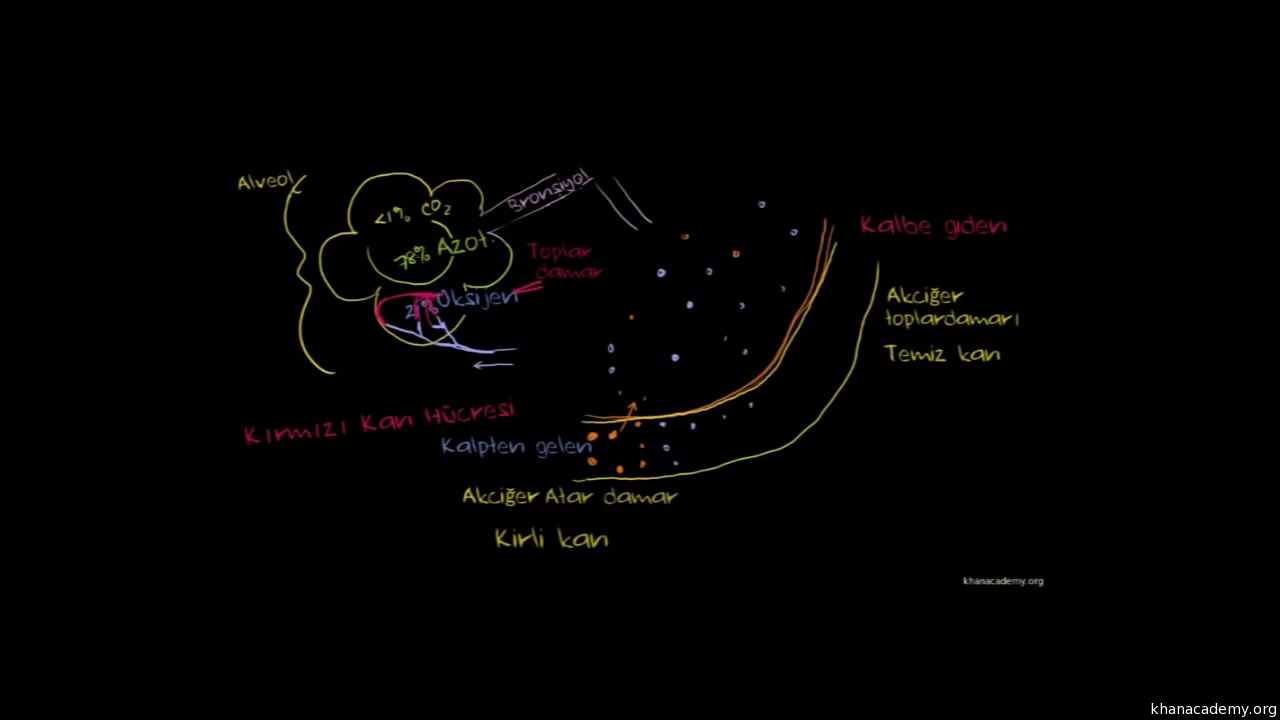 Alveol
<1% CO2
78% Azot
21% Oksijen
Bronşiyol
Toplar
damar
Kalbe giden
Akciğer
toplardamarı
Temiz kan
Kırmızı Kan Hücresi
Kalpten gelen
Akciğer Atar damar
Kirli kan
khanacademy.org
khanacademy.org